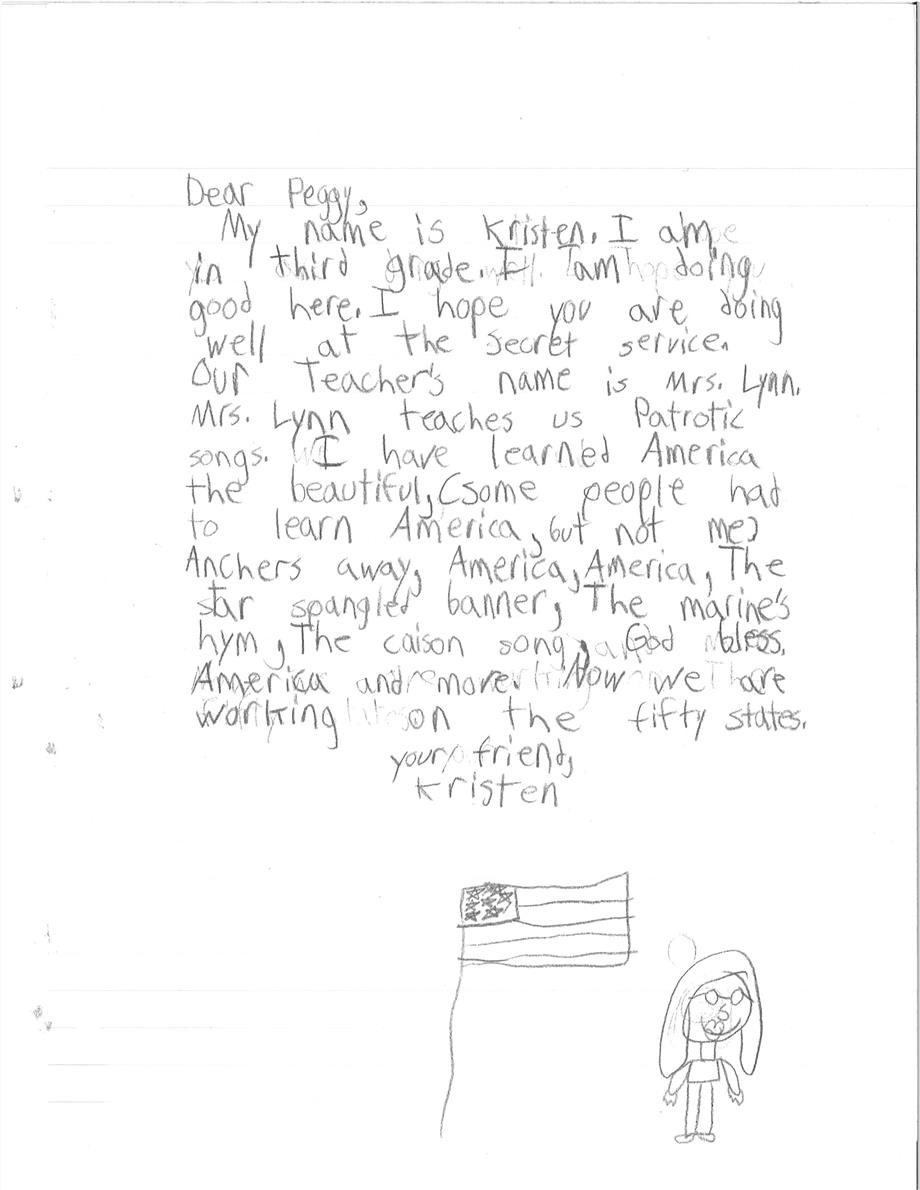 Dear Peggy,
My name is Kristen. I am
in third grade. I am doing
good here. I hope you are doing
well at the secret service.
Our Teacher's name is Mrs. Lynn.
Mrs. Lynn teaches us Patrotic
songs. I have learned America
the beautiful, (some people had
to learn America, but not me)
Anchers away, America, America, The
star spangled banner, The marine's
hym, The caison song, God bless
America and more. Now we are
working on the fifty states.
your friend,
Kristen